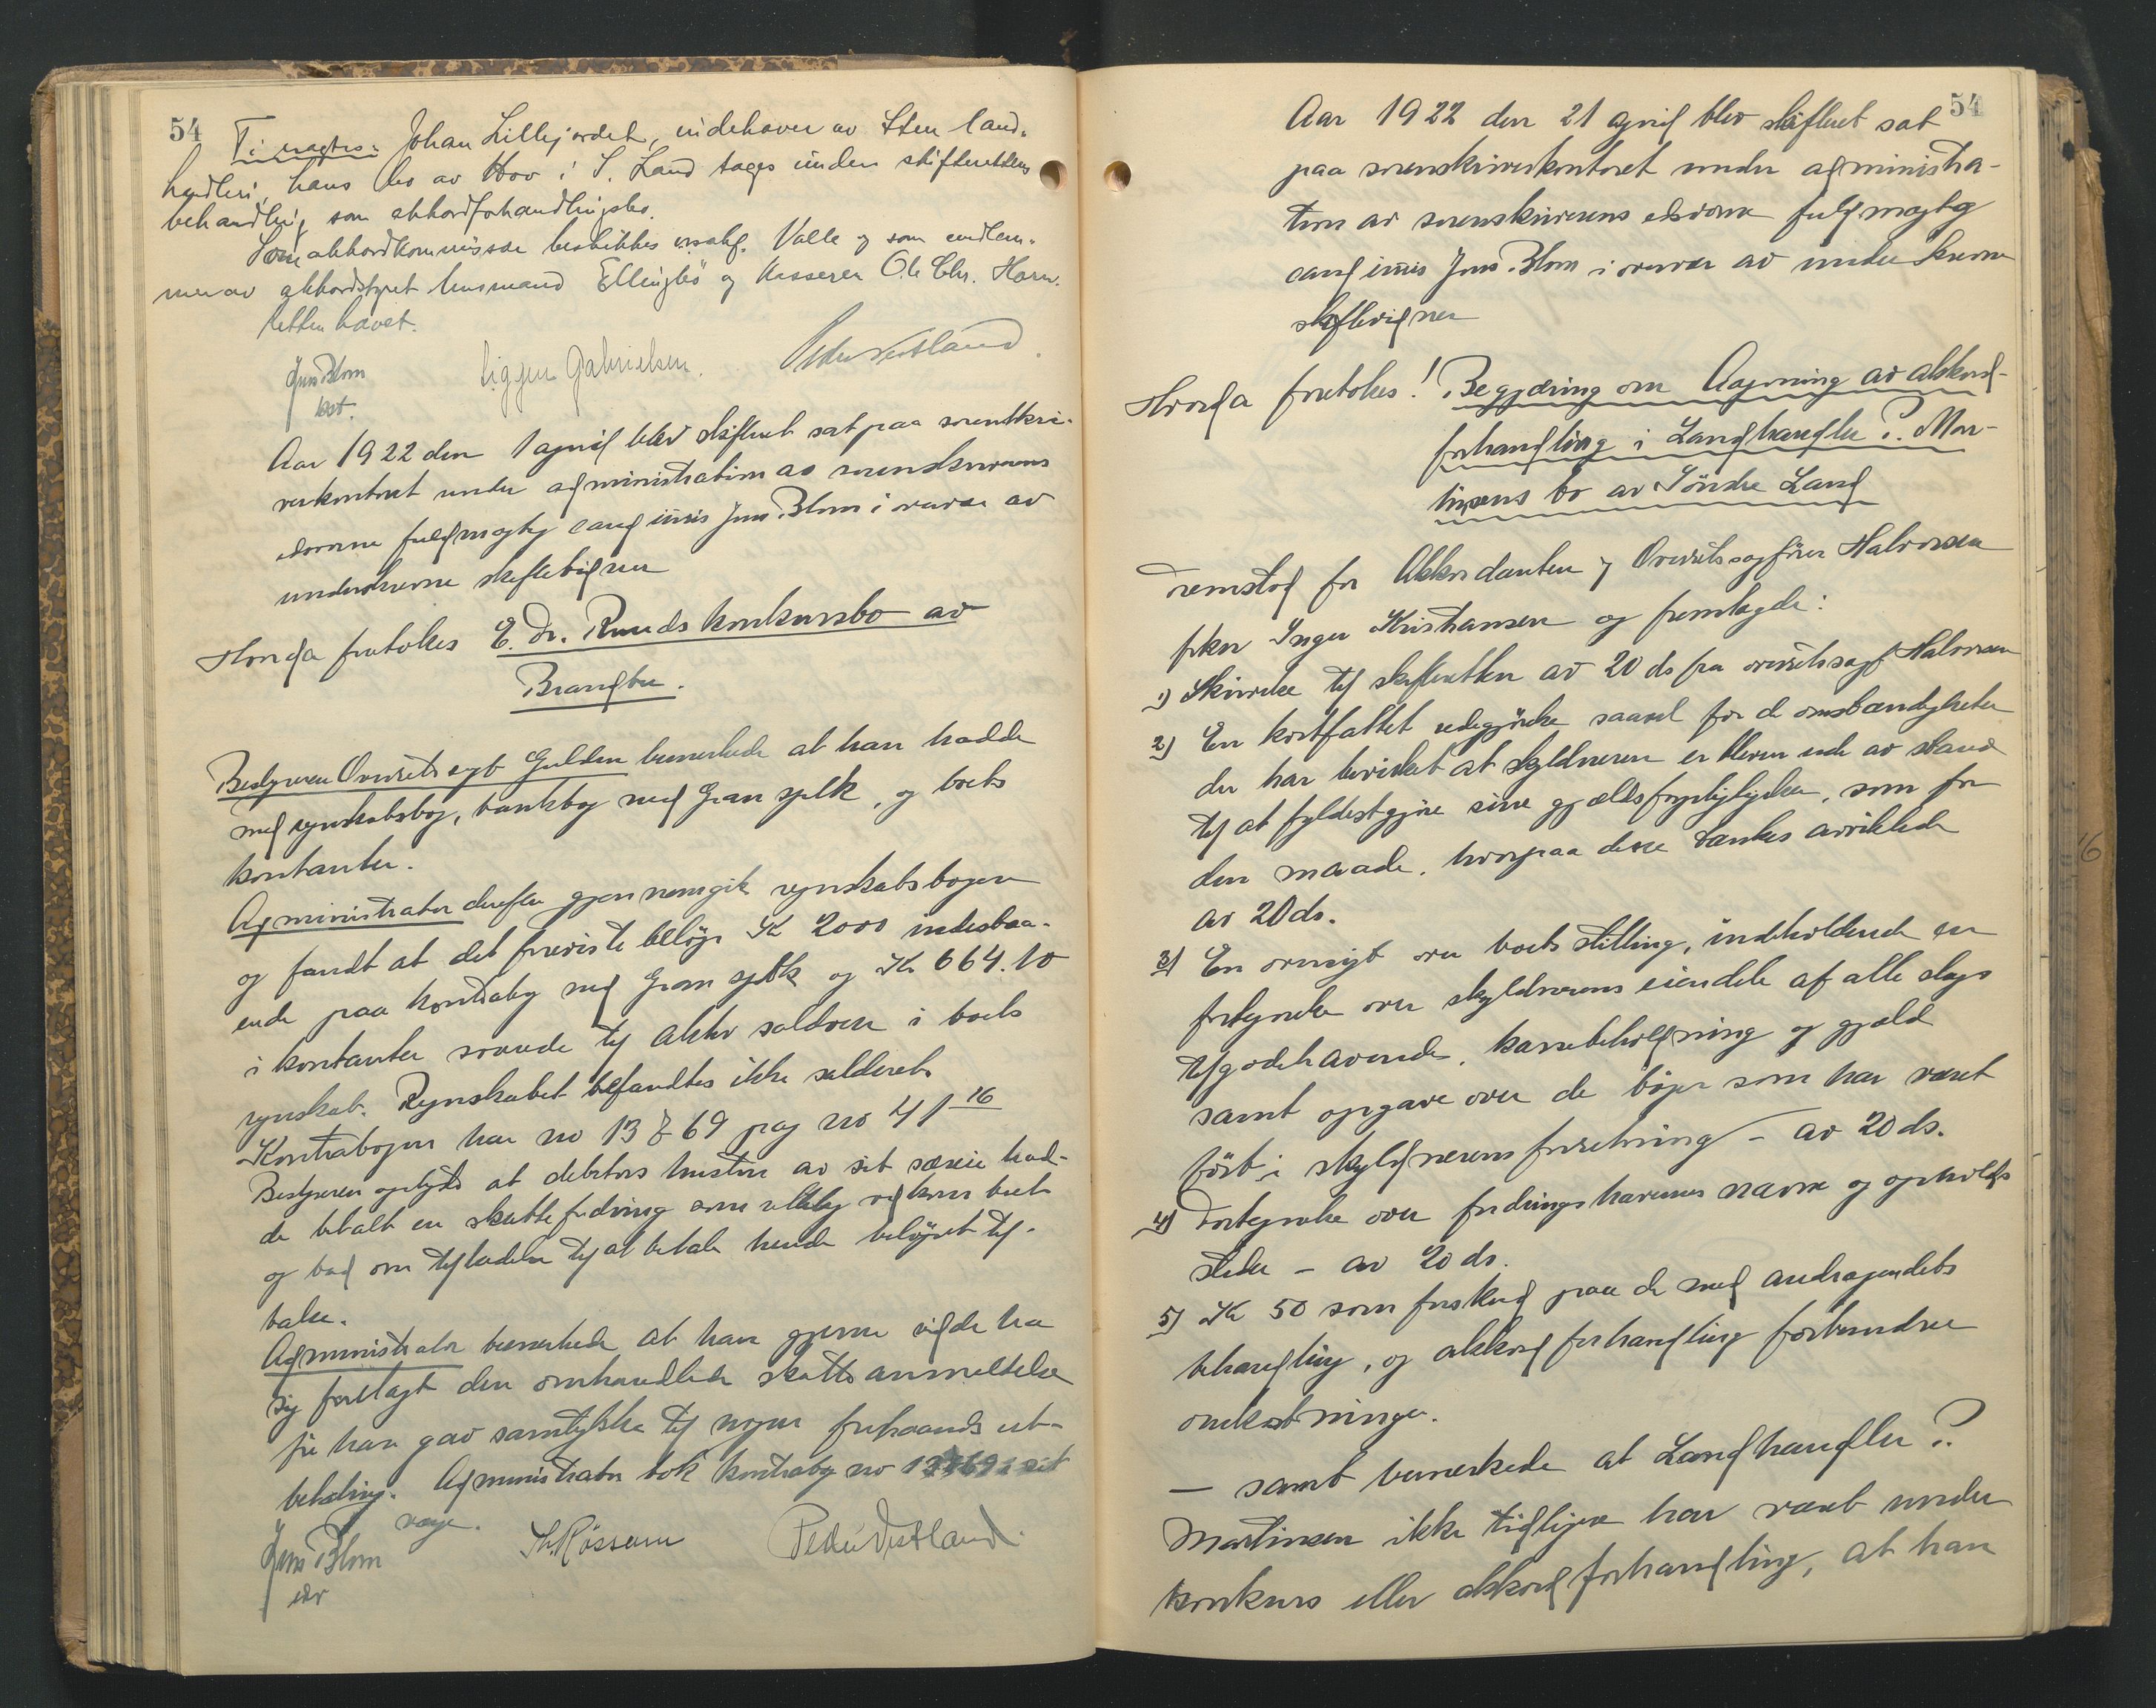 54
Ti ragtes: Johan Lillejordet, indehaver av Sten land-
handleri, hans bo av Hov i S. Land tages under skifterettens
behandling som akkordforhandlingsbo.
Som akkordkommissær beskikkes orsakf. Valle og som medlem-
mer av akkordstyret lensmand Ellingbö og kasserer O. Chr. Horn.
Retten hævet.
Jens Blom
kst.
Sigguu Gabrielsen.
Peder Vestland.
Aar 1922 den 1 april blev skifteret sat paa sorenskri-
verkontoret under administration av sorenskriverens
edsvorne fuldmægtig cand juris Jens Blom i overvær av
underskrevne skiftevidner
Hvorda foretokes E. Dr. Ruuds konkursbo av
Brandbu.
Bestyreren Overretssagf Gulden bemerkede at han hadde
med regnskabsbog, bankbog med Gran spbk, og boets
kontanter.
Administrator derefter gjennemgik regnskabsbogen
og fandt at det foreviste beløp Kr 2000 indestaa-
ende paa kontrabog med Gran spbk og Kr 664.10
i kontanter svarede til aktiv saldoen i boets
regnskab. Regnskabet befandtes ikke salderet.
Kontrabogen har no 13769 pag no 41 16
Bestyreren oplyste at debitors hustru av sit særeie had-
de betalt en skattefordring som rettelig vedkom boet
og bad om tilladelse til at betale hende beløpet til-
bake.
Administrator bemerkede at han gjerne vilde ha
sig forelagt den omhandlede skatteanmeldelse
før han gav samtykke til nogen forhaands ut-
betaling. Administrator tok kontrabog no 13769 i sit
værge.
Jens Blom
edsv
Th. Røssum
Peder Vestland.
54
Aar 1922 den 21 april blev skifteret sat
paa sorenskriverkontoret under administra-
tion av sorenskriverens edsvorne fuldmægtig
cand juris Jens Blom i overvær av underskrevne
skiftevidner
Hvorda foretokes! Begjæring om Aapning av akkord-
forhandling i Landhandler P. Mar-
tinsens bo av Söndre Land
Fremstod for Akkordanten og Overretssagfører Halvorsen
frkn Inger Kristiansen og fremlagde:
1) Skrivelse til skifteretten av 20 ds fra overretssagf Halvorsen
2) En kortfattet redegjörelse saavel for de omstændigheter
der har bevirket at skyldneren er bleven ude av stand
til at fyldestgjøre sine gjældsforpligtelser, som for
den maade, hvorpaa disse tænkes avviklede
av 20 ds.
3) En oversigt over boets stilling, indeholdende en
fortegnelse over skyldnerens eiendele af alle slags
tilgodehavende, kassebeholdning og gjæld
samt opgave over de böger som har været
fört i skyldnerens forretning – av 20 ds.
4) Fortegnelse over fordringshavernes navne og opholds
steder – av 20 ds.
5) Kr 50 som forskud paa de med andragendets
behandling, og akkordforhandling forbundne
omkostninger.
– samt bemerkede at Landhandler P.
Martinsen ikke tidligere har været under
konkurs eller akkordforhandling, at han
16